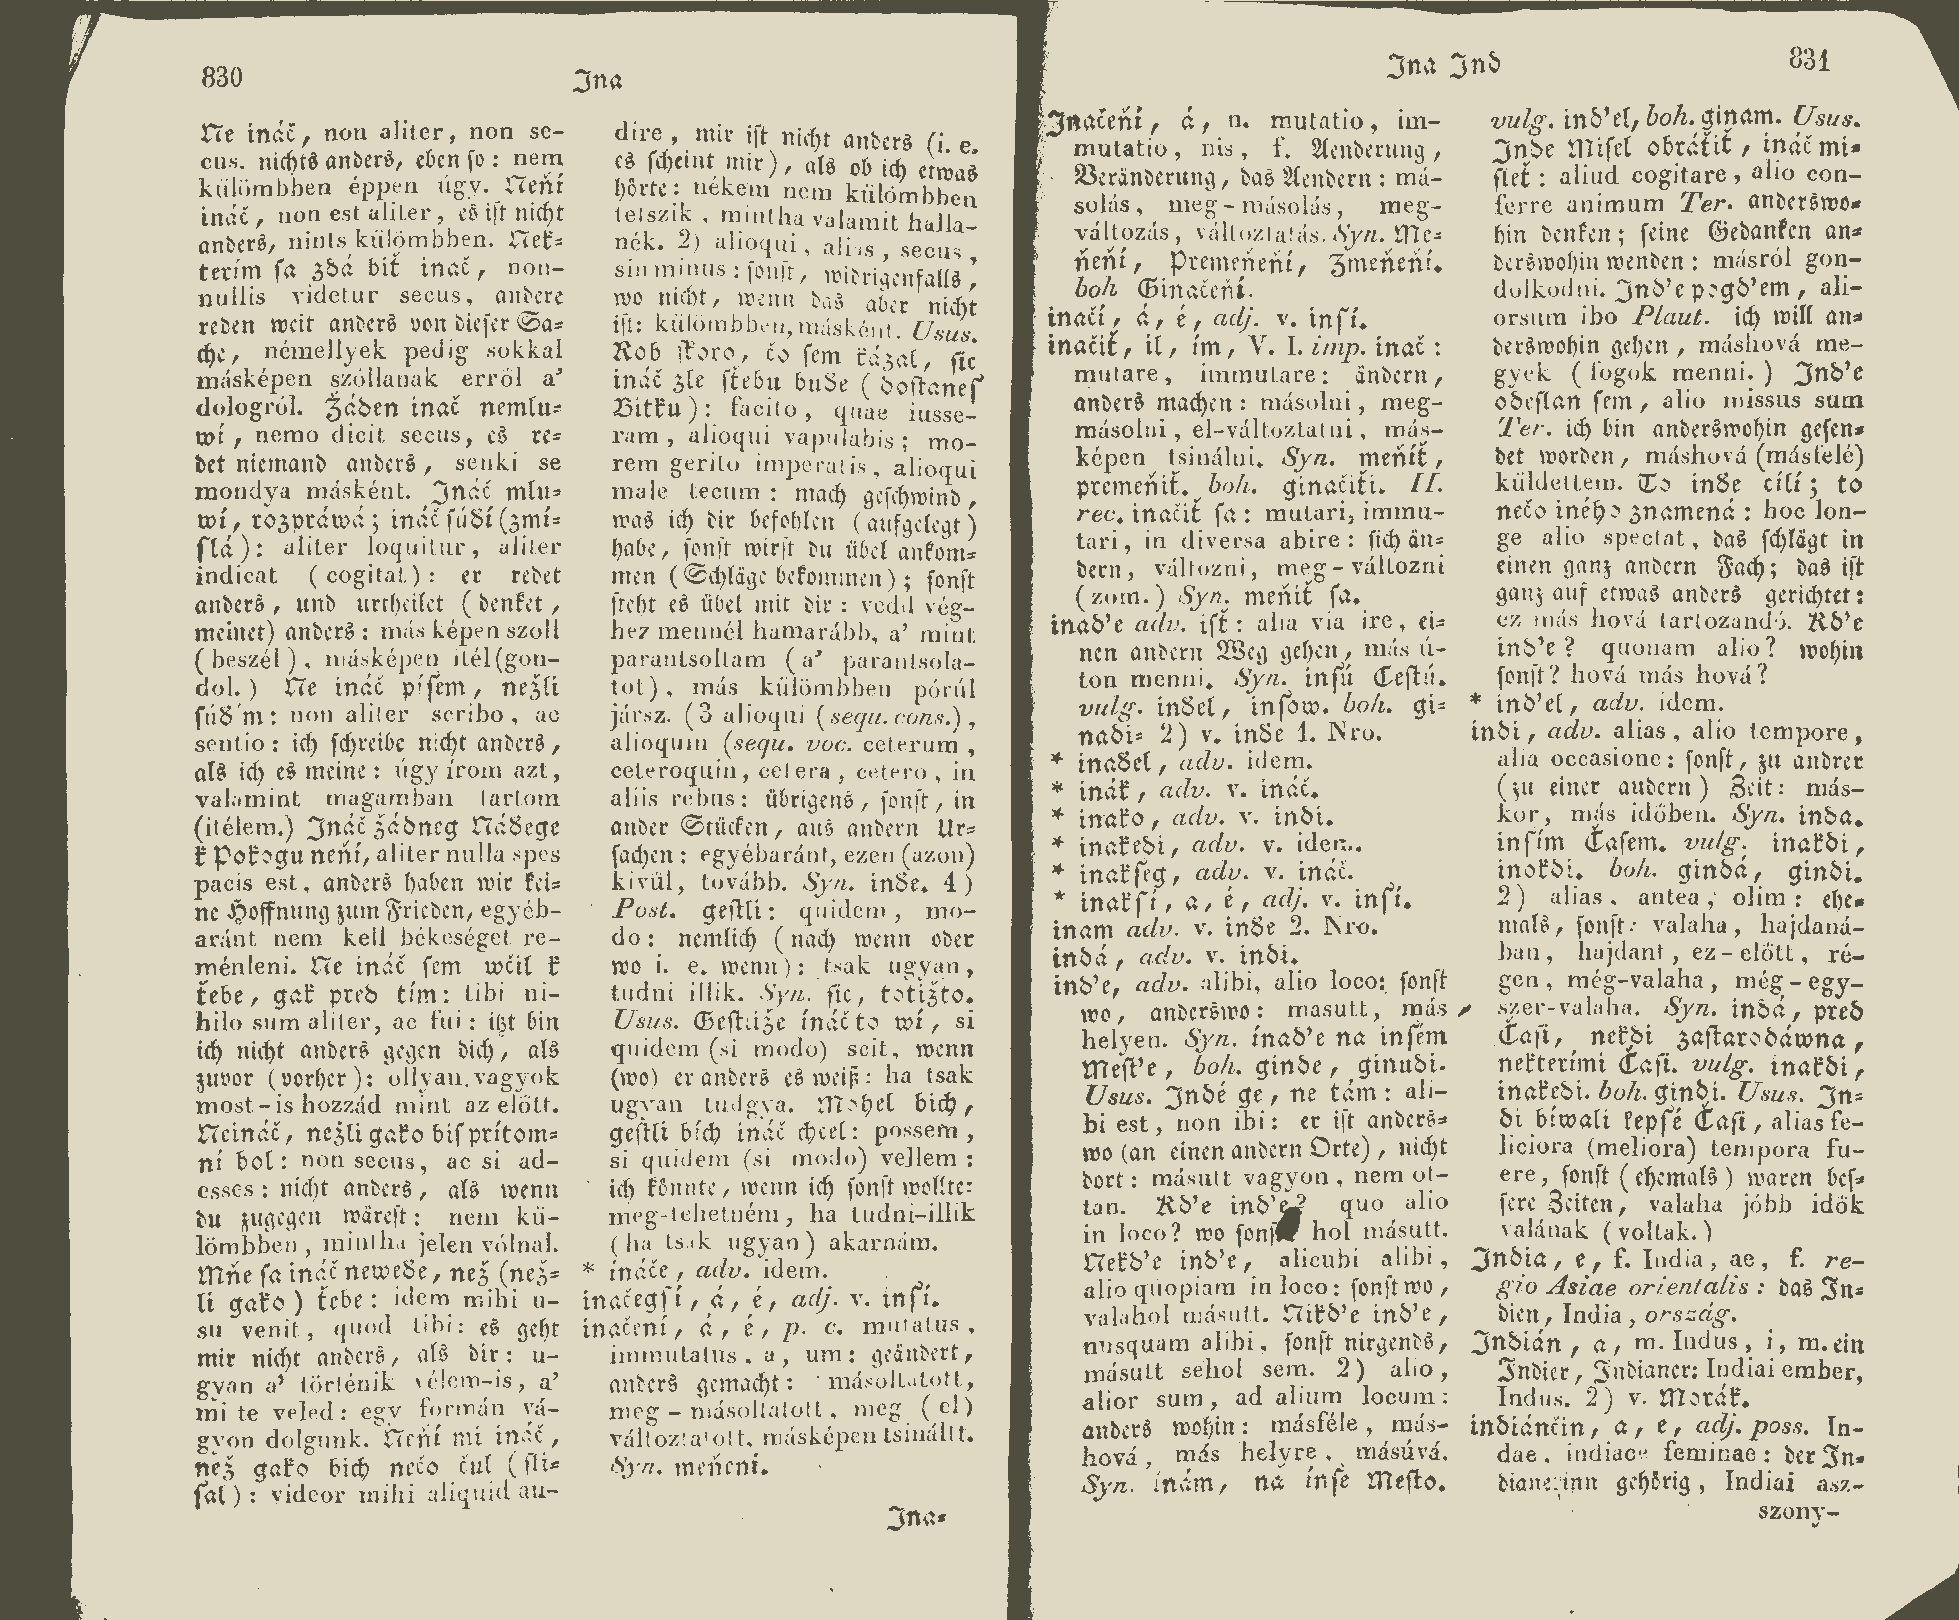 830
Ina
Ne ináč, non aliter, non se-
cus. nichts anders, eben so: nem
külömbben éppen úgy. Neňí
ináč, non est aliter, es ist nicht
anders, nints külömbben. Nek-
terím sa zdá biť inač, non-
nullis videtur secus, andere
reden weit anders von dieser Sa-
che, némellyek pedig sokkal
másképen szóllanak erről a'
dologról. Žáden inač nemlu-
wí, nemo dicit secus, es re-
det niemand anders, senki se
mondya másként. Ináč mlu-
wí, rozpráwá; ináč súďí (zmí-
šlá): aliter loquitur, aliter
indicat (cogitat): er redet
anders, und urtheilet (denket,
meinet) anders: más képen szoll
(beszél), másképen itél (gon-
dol.) Ne ináč píšem, nežli
súď'm: non aliter scribo, ac
sentio: ich schreibe nicht anders,
als ich es meine: úgy írom azt,
valamint magamban tartom
(itélem.) Ináč žádneg Náďege
k Pokogu neňí, aliter nulla spes
pacis est, anders haben wir kei-
ne Hoffnung zum Frieden, egyéb-
aránt nem kell békeséget re-
ménleni. Ne ináč sem wčil k
ťebe, gak pred tím: tibi ni-
hilo sum aliter, ac fui: itzt bin
ich nicht anders gegen dich, als
zuvor (vorher): ollyan vagyok
most-is hozzád mint az előtt.
Neináč, nežli gako bis prítom-
ní bol: non secus, ac si ad-
esses: nicht anders, als wenn
du zugegen wärest: nem kü-
lömbben, mintha jelen vólnal.
Mňe sa ináč neweďe, než (než-
li gako) ťebe: idem mihi u-
su venit, quod tibi: es geht
mir nicht anders, als dir: u-
gyan a' történik vélem-is, a'
mi te veled: egy formán vá-
gyon dolgunk. Neňí mi ináč,
než gako bich nečo čul (sli-
šal): videor mihi aliquid au-
dire, mir ist nicht anders (i. e.
es scheint mir), als ob ich etwas
hörte: nékem nem külömbben
tetszik, mintha valamit halla-
nék. 2) alioqui, alias, secus,
sin minus: sonst, widrigenfalls,
wo nicht, wenn das aber nicht
ist: külömbben, másként. Usus.
Rob skoro, čo sem kázal, sic
ináč zle s ťebu buďe (dostaneš
Bitku): facito, quae iusse-
ram, alioqui vapulabis; mo-
rem gerito imperatis, alioqui
male tecum: mach geschwind,
was ich dir befohlen (aufgelegt)
habe, sonst wirst du übel ankom-
men (Schläge bekommen); sonst
steht es übel mit dir: vedd vég-
hez mennél hamarább, a' mint
parantsoltam (a' parantsola-
tot), más külömbben pórúl
jársz. (3 alioqui (sequ. cons.),
alioquin (sequ. voc. ceterum,
ceteroquin, cetera, cetero, in
aliis rebus: übrigens, sonst, in
ander Stücken, aus andern Ur-
sachen: egyébaránt, ezen (azon)
kivül, tovább. Syn. inďe. 4)
Post. gestli: quidem, mo-
do: nemlich (nach wenn oder
wo i. e. wenn): tsak ugyan,
tudni illik. Syn. sic, totižto.
Usus. Gestliže ínáč to wí, si
quidem (si modo) scit, wenn
(wo) er anders es weiß: ha tsak
ugyan tudgya. Mohel bich,
gestli bích ináč chcel: possem,
si quidem (si modo) vellem:
ich könnte, wenn ich sonst wollte:
meg-tehetném, ha tudni-illik
(ha tsak ugyan) akarnám.
* ináče, adv. idem.
inačegší, á, é, adj. v. inší.
inačení, á, é, p. c. mutatus,
immutatus, a, um: geändert,
anders gemacht: másoltatott,
meg-másoltatott, meg (el)
változtatott, másképen tsináltt.
Syn. meňení.
Ina-
Ina Ind
831
Inačeňí, á, n. mutatio, im-
mutatio, nis, f. Aenderung,
Veränderung, das Aendern: má-
solás, meg-másolás, meg-
változás, változtatás. Syn. Me-
ňeňí, Premeňeňí, Zmeňeňí.
boh Ginačeňí.
inačí, á, é, adj. v. inší.
inačiť, il, ím, V. I. imp. inač:
mutare, immutare: ändern,
anders machen: másolni, meg-
másolni, el-változtatni, más-
képen tsinálni. Syn. meňiť,
premeňiť. boh. ginačiti. II.
rec. inačiť sa: mutari, immu-
tari, in diversa abire: sich än-
dern, változni, meg-változni
(zom.) Syn. meňiť sa.
inad'e adv. isť: alia via ire, ei-
nen andern Weg gehen, más ú-
ton menni. Syn. insú Cestú.
vulg. inďel, insow. boh. gi-
nadi- 2) v. inďe 1. Nro.
* inaďel, adv. idem.
* inák, adv. v. ináč.
* inako, adv. v. indi.
* inakedi, adv. v. idem.
* inakseg, adv. v. ináč.
* inakší, a, é, adj. v. inší.
inam adv. v. inďe 2. Nro.
indá, adv. v. indi.
ind'e, adv. alibi, alio loco: sonst
wo, anderswo: masutt, más
helyen. Syn. ínad'e na inšém
Mest'e, boh. ginde, ginudi.
Usus. Indé ge, ne tám: ali-
bi est, non ibi: er ist anders-
wo (an einen andern Orte), nicht
dort: másutt vagyon, nem ot-
tan. Kd'e ind'e? quo alio
in loco? wo sonst hol másutt.
Nekd'e ind'e, alicubi alibi,
alio quopiam in loco: sonst wo,
valahol másutt. Nikd'e ind'e,
nusquam alibi, sonst nirgends,
másutt sehol sem. 2) alio,
alior sum, ad alium locum:
anders wohin: másféle, más-
hová, más helyre, másúvá.
Syn. ínám, na ínše Mesto.
vulg. ind'el, boh. ginam. Usus.
Inďe Misel obráťiť, ináč mi-
sleť: aliud cogitare, alio con-
ferre animum Ter. anderswo-
hin denken; seine Gedanken an-
derswohin wenden: másról gon-
dolkodni. Ind'e pogd'em, ali-
orsum ibo Plaut. ich will an-
derswohin gehen, máshová me-
gyek (fogok menni.) Ind'e
odeslan sem, alio missus sum
Ter. ich bin anderswohin gesen-
det worden, máshová (másfelé)
küldettem. To inďe cílí; to
nečo iného znamená: hoc lon-
ge alio spectat, das schlägt in
einen ganz andern Fach; das ist
ganz auf etwas anders gerichtet:
ez más hová tartozandó. Kd'e
ind'e? quonam alio? wohin
sonst? hová más hová?
* ind'el, adv. idem.
indi, adv. alias, alio tempore,
alia occasione: sonst, zu andrer
(zu einer andern) Zeit: más-
kor, más időben. Syn. inda.
inším Časem. vulg. inakdi,
inokdi. boh. gindá, gindi.
2) alias, antea, olim: ehe-
mals, sonst: valaha, hajdaná-
ban, hajdant, ez-előtt, ré-
gen, még-valaha, még-egy-
szer-valaha. Syn. indá, pred
Časi, nekdi zastarodáwna,
nekterími Časi. vulg. inakdi,
inakedi. boh. gindi. Usus. In-
di bíwali lepšé Časi, alias fe-
liciora (meliora) tempora fu-
ere, sonst (ehemals) waren bes-
sere Zeiten, valaha jóbb idők
valának (voltak.)
India, e, f. India, ae, f. re-
gio Asiae orientalis: das In-
dien, India, ország.
Indián, a, m. Indus, i, m. ein
Indier, Indianer: Indiai ember,
Indus. 2) v. Morák.
indiánčin, a, e, adj. poss. In-
dae, indiace feminae: der In-
dianerinn gehörig, Indiai asz-
szony-